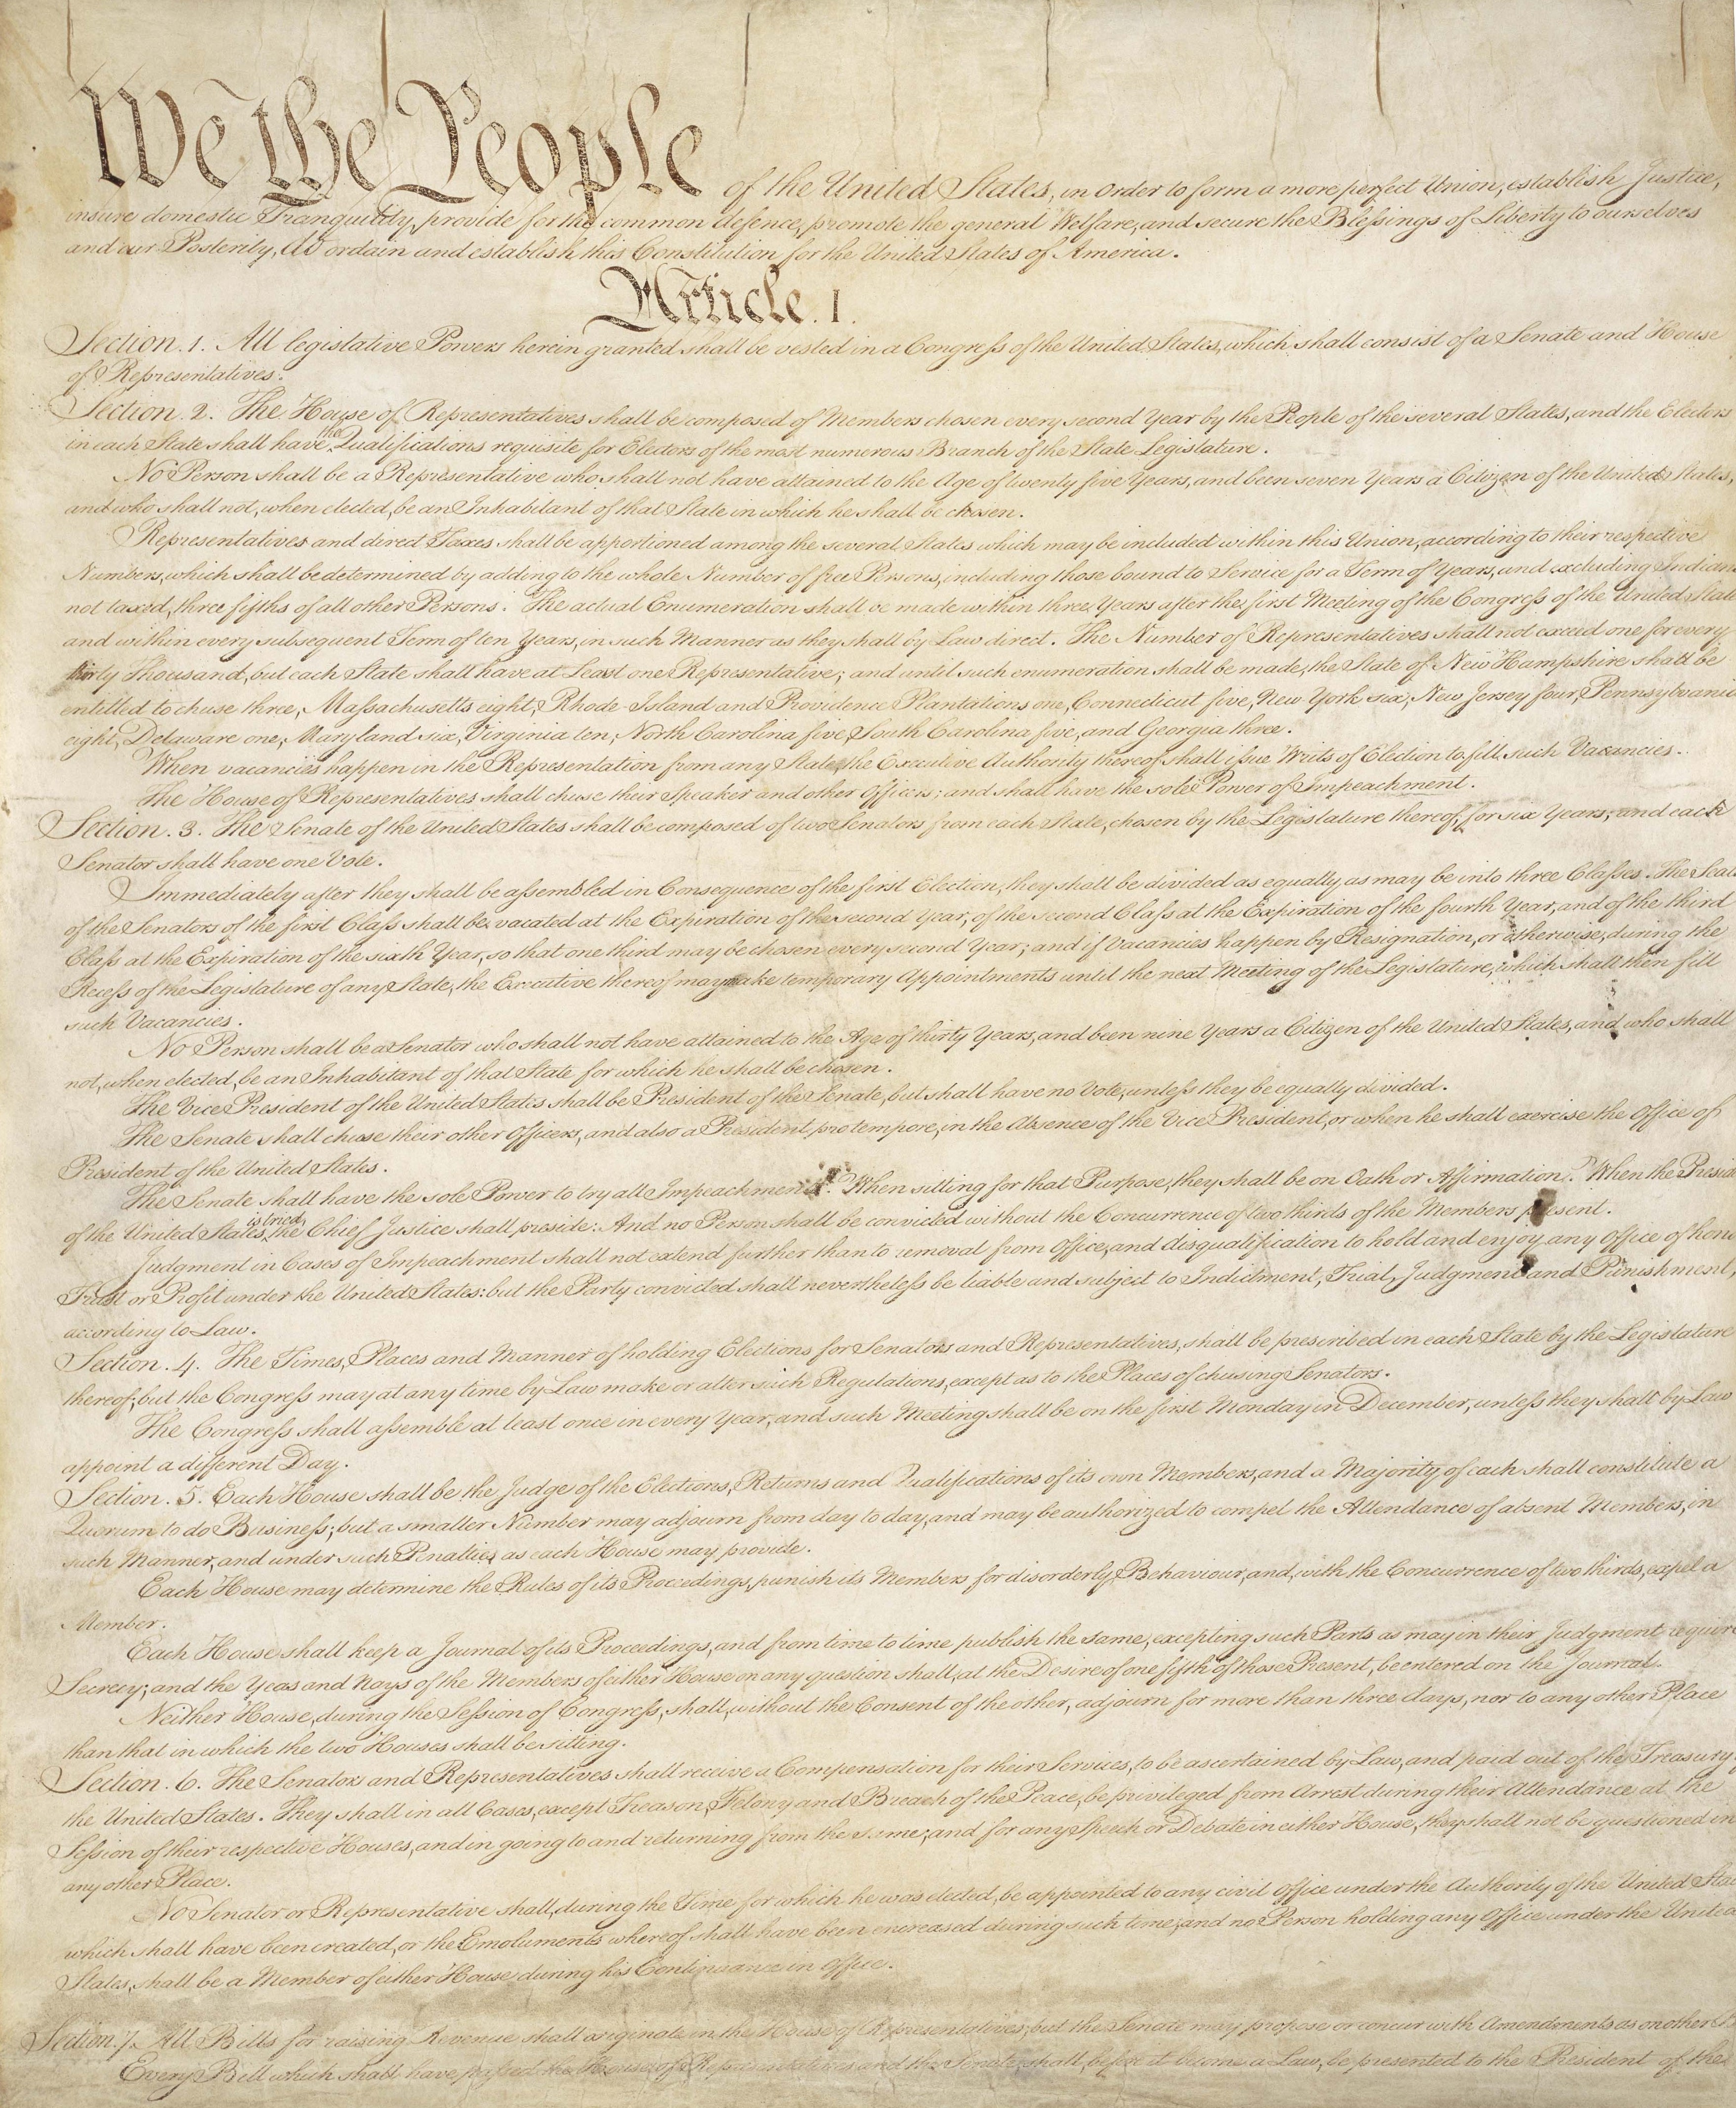 We the People of the United States, in Order to form a more perfect Union, establish Justice,
insure domestic Tranquility, provide for the common defence, promote the general Welfare, and secure the Blessings of Liberty to ourselves
and our Posterity, do ordain and establish this Constitution for the United States of America.
Article. I.
Section. 1. All legislative Powers herein granted shall be vested in a Congress of the United States, which shall consist of a Senate and House
of Representatives.
Section. 2. The House of Representatives shall be composed of Members chosen every second Year by the People of the several States, and the Electors
in each State shall have the Qualifications requisite for Electors of the most numerous Branch of the State Legislature.
No Person shall be a Representative who shall not have attained to the Age of twenty five Years, and been seven Years a Citizen of the United States,
and who shall not, when elected, be an Inhabitant of that State in which he shall be chosen.
Representatives and direct Taxes shall be apportioned among the several States which may be included within this Union, according to their respective
Numbers, which shall be determined by adding to the whole Number of free Persons, including those bound to Service for a Term of Years, and excluding Indians
not taxed, three fifths of all other Persons. The actual Enumeration shall be made within three Years after the first Meeting of the Congress of the United State
and within every subsequent Term of ten Years, in such Manner as they shall by Law direct. The Number of Representatives shall not exceed one for every
thirty Thousand, but each State shall have at Least one Representative; and until such enumeration shall be made, the State of New Hampshire shall be
entitled to chuse three, Massachusetts eight, Rhode-Island and Providence Plantations one, Connecticut five, New-York six, New Jersey four, Pennsylvania
eight, Delaware one, Maryland six, Virginia ten, North Carolina five, South Carolina five, and Georgia three.
When vacancies happen in the Representation from any State, the Executive Authority thereof shall issue Writs of Election to fill such Vacancies.
The House of Representatives shall chuse their Speaker and other Officers; and shall have the sole Power of Impeachment.
Section. 3. The Senate of the United States shall be composed of two Senators from each State, chosen by the Legislature thereof, for six Years; and each
Senator shall have one Vote.
Immediately after they shall be assembled in Consequence of the first Election, they shall be divided as equally as may be into three Classes. The Seats
of the Senators of the first Class shall be vacated at the Expiration of the second Year, of the second Class at the Expiration of the fourth Year, and of the third
Class at the Expiration of the sixth Year, so that one third may be chosen every second Year; and if Vacancies happen by Resignation, or otherwise, during the
Recess of the Legislature of any State, the Executive thereof may make temporary Appointments until the next Meeting of the Legislature, which shall then fill
such Vacancies.
No Person shall be a Senator who shall not have attained to the Age of thirty Years, and been nine Years a Citizen of the United States, and who shall
not, when elected, be an Inhabitant of that State for which he shall be chosen.
The Vice President of the United States shall be President of the Senate, but shall have no Vote, unless they be equally divided.
The Senate shall chuse their other Officers, and also a President pro tempore, in the Absence of the Vice President, or when he shall exercise the Office of
President of the United States.
The Senate shall have the sole Power to try all Impeachments. When sitting for that Purpose, they shall be on Oath or Affirmation. When the Presid
of the United States is tried, the Chief Justice shall preside: And no Person shall be convicted without the Concurrence of two thirds of the Members present.
Judgment in Cases of Impeachment shall not extend further than to removal from Office, and disqualification to hold and enjoy any Office of hono
Trust or Profit under the United States: but the Party convicted shall nevertheless be liable and subject to Indictment, Trial, Judgment and Punishment,
according to Law.
Section. 4. The Times, Places and Manner of holding Elections for Senators and Representatives, shall be prescribed in each State by the Legislature
thereof; but the Congress may at any time by Law make or alter such Regulations, except as to the Places of chusing Senators.
The Congress shall assemble at least once in every Year, and such Meeting shall be on the first Monday in December, unless they shall by Law
appoint a different Day.
Section. 5. Each House shall be the Judge of the Elections, Returns and Qualifications of its own Members, and a Majority of each shall constitute a
Quorum to do Business; but a smaller Number may adjourn from day to day, and may be authorized to compel the Attendance of absent Members, in
such Manner, and under such Penalties as each House may provide.
Each House may determine the Rules of its Proceedings, punish its Members for disorderly Behaviour, and, with the Concurrence of two thirds, expel a
Member.
Each House shall keep a Journal of its Proceedings, and from time to time publish the same, excepting such Parts as may in their Judgment require
Secrecy; and the Yeas and Nays of the Members of either House on any question shall, at the Desire of one fifth of those Present, be entered on the Journal.
Neither House, during the Session of Congress, shall, without the Consent of the other, adjourn for more than three days, nor to any other Place
than that in which the two Houses shall be sitting.
Section. 6. The Senators and Representatives shall receive a Compensation for their Services, to be ascertained by Law, and paid out of the Treasury of
the United States. They shall in all Cases, except Treason, Felony and Breach of the Peace, be privileged from Arrest during their Attendance at the
Session of their respective Houses, and in going to and returning from the same; and for any Speech or Debate in either House, they shall not be questioned in
any other Place.
No Senator or Representative shall, during the Time for which he was elected, be appointed to any civil Office under the Authority of the United Stat
which shall have been created, or the Emoluments whereof shall have been encreased during such time; and no Person holding any Office under the United
States, shall be a Member of either House during his Continuance in Office.
Section. 7. All Bills for raising Revenue shall originate in the House of Representatives; but the Senate may propose or concur with Amendments as on other B
Every Bill which shall have passed the House of Representatives and the Senate, shall, before it become a Law, be presented to the President of the